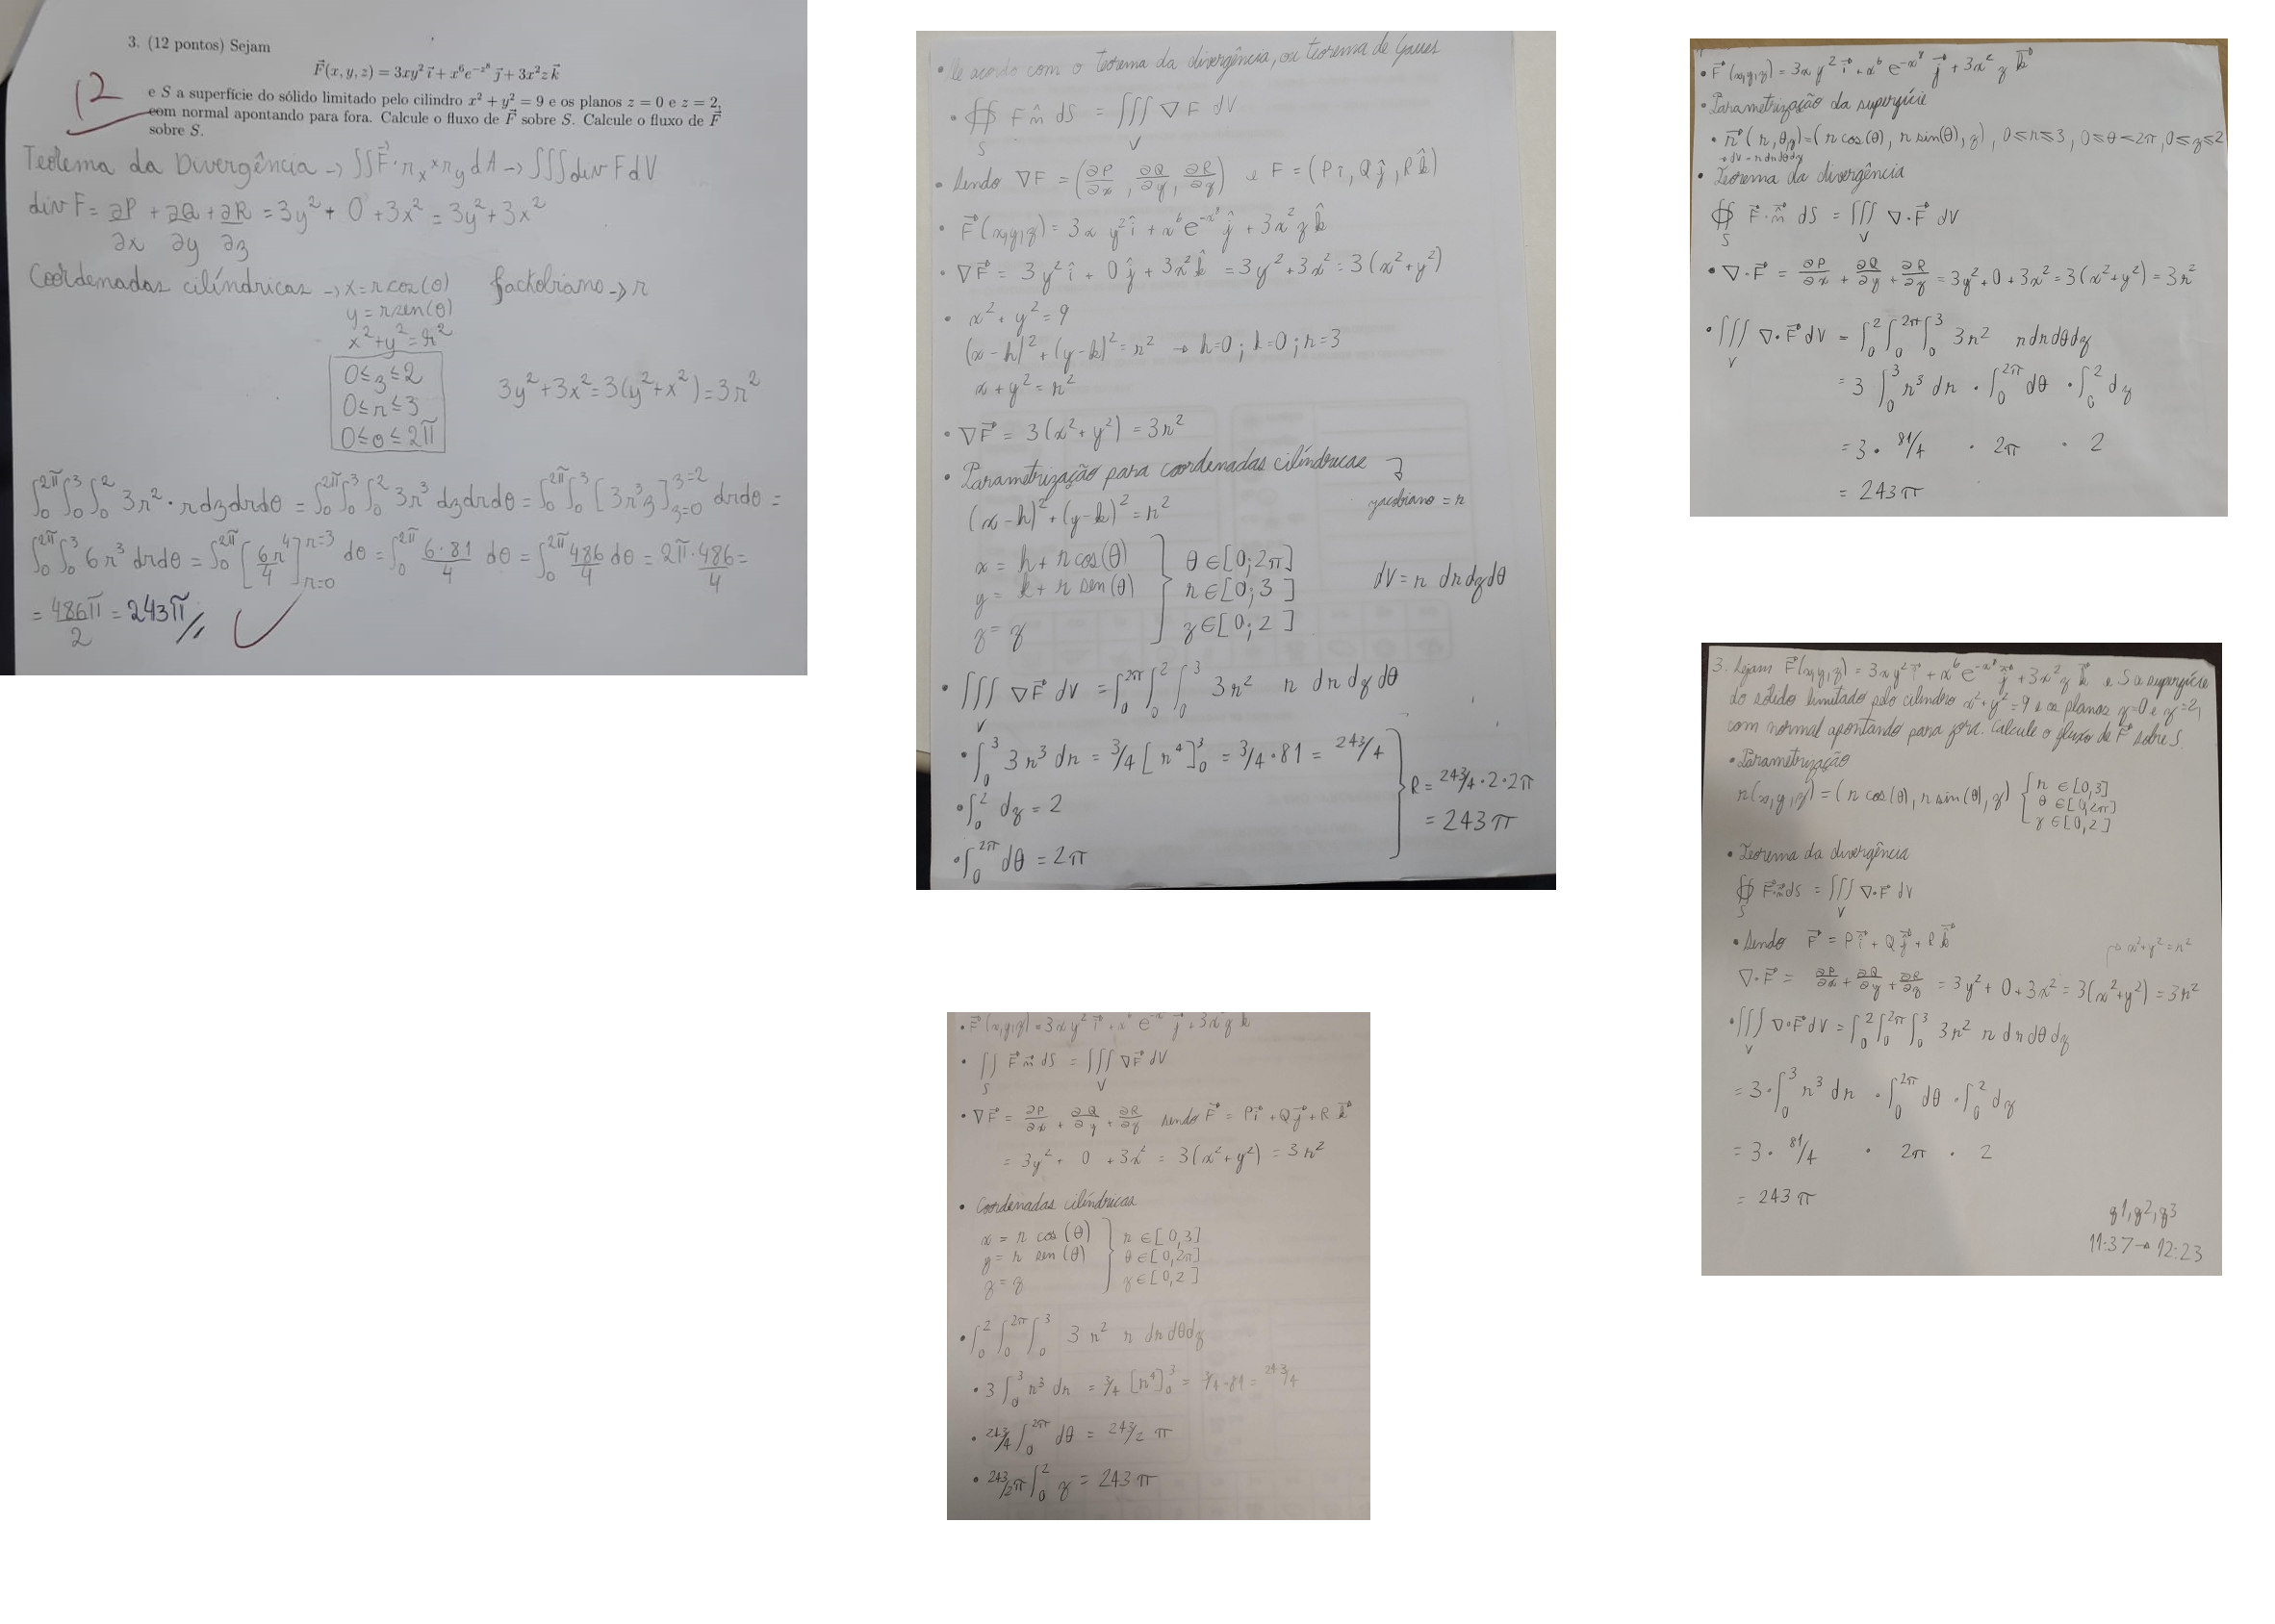 3. (12 pontos) Sejam
F⃗(x, y, z) = 3xy² i⃗ + x⁶e^{-z⁸} j⃗ + 3x²z k⃗
12
e S a superfície do sólido limitado pelo cilindro x² + y² = 9 e os planos z = 0 e z = 2,
com normal apontando para fora. Calcule o fluxo de F⃗ sobre S. Calcule o fluxo de F⃗
sobre S.
Teorema da Divergência → ∬F⃗·r_x×r_y dA → ∭div F dV
div F = ∂P/∂x + ∂Q/∂y + ∂R/∂z = 3y² + 0 + 3x² = 3y² + 3x²
Coordenadas cilíndricas → x = r cos(θ) Jackobiano → r
y = r sen(θ)
x² + y² = r²
0 ≤ z ≤ 2
0 ≤ r ≤ 3
0 ≤ θ ≤ 2π
3y² + 3x² = 3(y² + x²) = 3r²
∫₀^{2π}∫₀³∫₀² 3r² · r dz dr dθ = ∫₀^{2π}∫₀³∫₀² 3r³ dz dr dθ = ∫₀^{2π}∫₀³ [3r³z]_{z=0}^{z=2} dr dθ =
∫₀^{2π}∫₀³ 6r³ dr dθ = ∫₀^{2π} [6r⁴/4]_{r=0}^{r=3} dθ = ∫₀^{2π} 6·81/4 dθ = ∫₀^{2π} 486/4 dθ = 2π·486/4 =
= 486π/2 = 243π //
• De acordo com o teorema da divergência, ou teorema de Gauss
• ∯_S F n̂ dS = ∭_V ∇F dV
• Sendo ∇F = (∂P/∂x, ∂Q/∂y, ∂R/∂z) e F = (P î, Q ĵ, R k̂)
• F⃗(x,y,z) = 3x y² î + x⁶ e^{-x⁸} ĵ + 3x² z k̂
• ∇F⃗ = 3y² î + 0 ĵ + 3x² k̂ = 3y² + 3x² = 3(x² + y²)
• x² + y² = 9
(x - h)² + (y - k)² = r² → h=0; k=0; r=3
x + y² = r²
• ∇F⃗ = 3(x² + y²) = 3r²
• Parametrização para coordenadas cilíndricas
jacobiano = r
(x - h)² + (y - k)² = r²
x = h + r cos(θ) θ ∈ [0; 2π]
y = k + r sen(θ) r ∈ [0; 3] dV = r dr dz dθ
z = z z ∈ [0; 2]
• ∭_V ∇F⃗ dV = ∫₀^{2π}∫₀²∫₀³ 3r² r dr dz dθ
• ∫₀³ 3r³ dr = 3/4 [r⁴]₀³ = 3/4 · 81 = 243/4
• ∫₀² dz = 2
R = 243/4 · 2 · 2π
= 243π
• ∫₀^{2π} dθ = 2π
• F⃗(x,y,z) = 3x y² i⃗ + x⁶ e^{-x} j⃗ + 3x² z k⃗
• ∬_S F⃗ n⃗ dS = ∭_V ∇F⃗ dV
• ∇F⃗ = ∂P/∂x + ∂Q/∂y + ∂R/∂z sendo F⃗ = P i⃗ + Q j⃗ + R k⃗
= 3y² + 0 + 3x² = 3(x² + y²) = 3r²
• Coordenadas cilíndricas
x = r cos(θ) r ∈ [0,3]
y = r sen(θ) θ ∈ [0,2π]
z = z z ∈ [0,2]
• ∫₀²∫₀^{2π}∫₀³ 3r² r dr dθ dz
• 3∫₀³ r³ dr = 3/4 [r⁴]₀³ = 3/4·81 = 243/4
• 243/4 ∫₀^{2π} dθ = 243/2 π
• 243/2 π ∫₀² z = 243π
• F⃗(x,y,z) = 3x y² i⃗ + x⁶ e^{-x⁸} j⃗ + 3x² z k⃗
• Parametrização da superfície
• r⃗(r,θ,z) = (r cos(θ), r sin(θ), z), 0≤r≤3, 0≤θ≤2π, 0≤z≤2
→ dV = r dr dθ dz
• Teorema da divergência
∯_S F⃗·n⃗ dS = ∭_V ∇·F⃗ dV
• ∇·F⃗ = ∂P/∂x + ∂Q/∂y + ∂R/∂z = 3y² + 0 + 3x² = 3(x² + y²) = 3r²
• ∭_V ∇·F⃗ dV = ∫₀²∫₀^{2π}∫₀³ 3r² r dr dθ dz
= 3 ∫₀³ r³ dr · ∫₀^{2π} dθ · ∫₀² dz
= 3 · 81/4 · 2π · 2
= 243π
3. Sejam F⃗(x,y,z) = 3x y² i⃗ + x⁶ e^{-x⁸} j⃗ + 3x² z k⃗ e S a superfície
do sólido limitado pelo cilindro x² + y² = 9 e os planos z=0 e z=2,
com normal apontando para fora. Calcule o fluxo de F⃗ sobre S.
• Parametrização
r(x,y,z) = (r cos(θ), r sin(θ), z) r ∈ [0,3]
θ ∈ [0,2π]
z ∈ [0,2]
• Teorema da divergência
∯_S F⃗·n⃗ dS = ∭_V ∇·F⃗ dV
• Sendo F⃗ = P i⃗ + Q j⃗ + R k⃗ → x² + y² = r²
∇·F⃗ = ∂P/∂x + ∂Q/∂y + ∂R/∂z = 3y² + 0 + 3x² = 3(x² + y²) = 3r²
• ∭_V ∇·F⃗ dV = ∫₀²∫₀^{2π}∫₀³ 3r² r dr dθ dz
= 3 · ∫₀³ r³ dr · ∫₀^{2π} dθ · ∫₀² dz
= 3 · 81/4 · 2π · 2
= 243π
q1, q2, q3
11:37 → 12:23